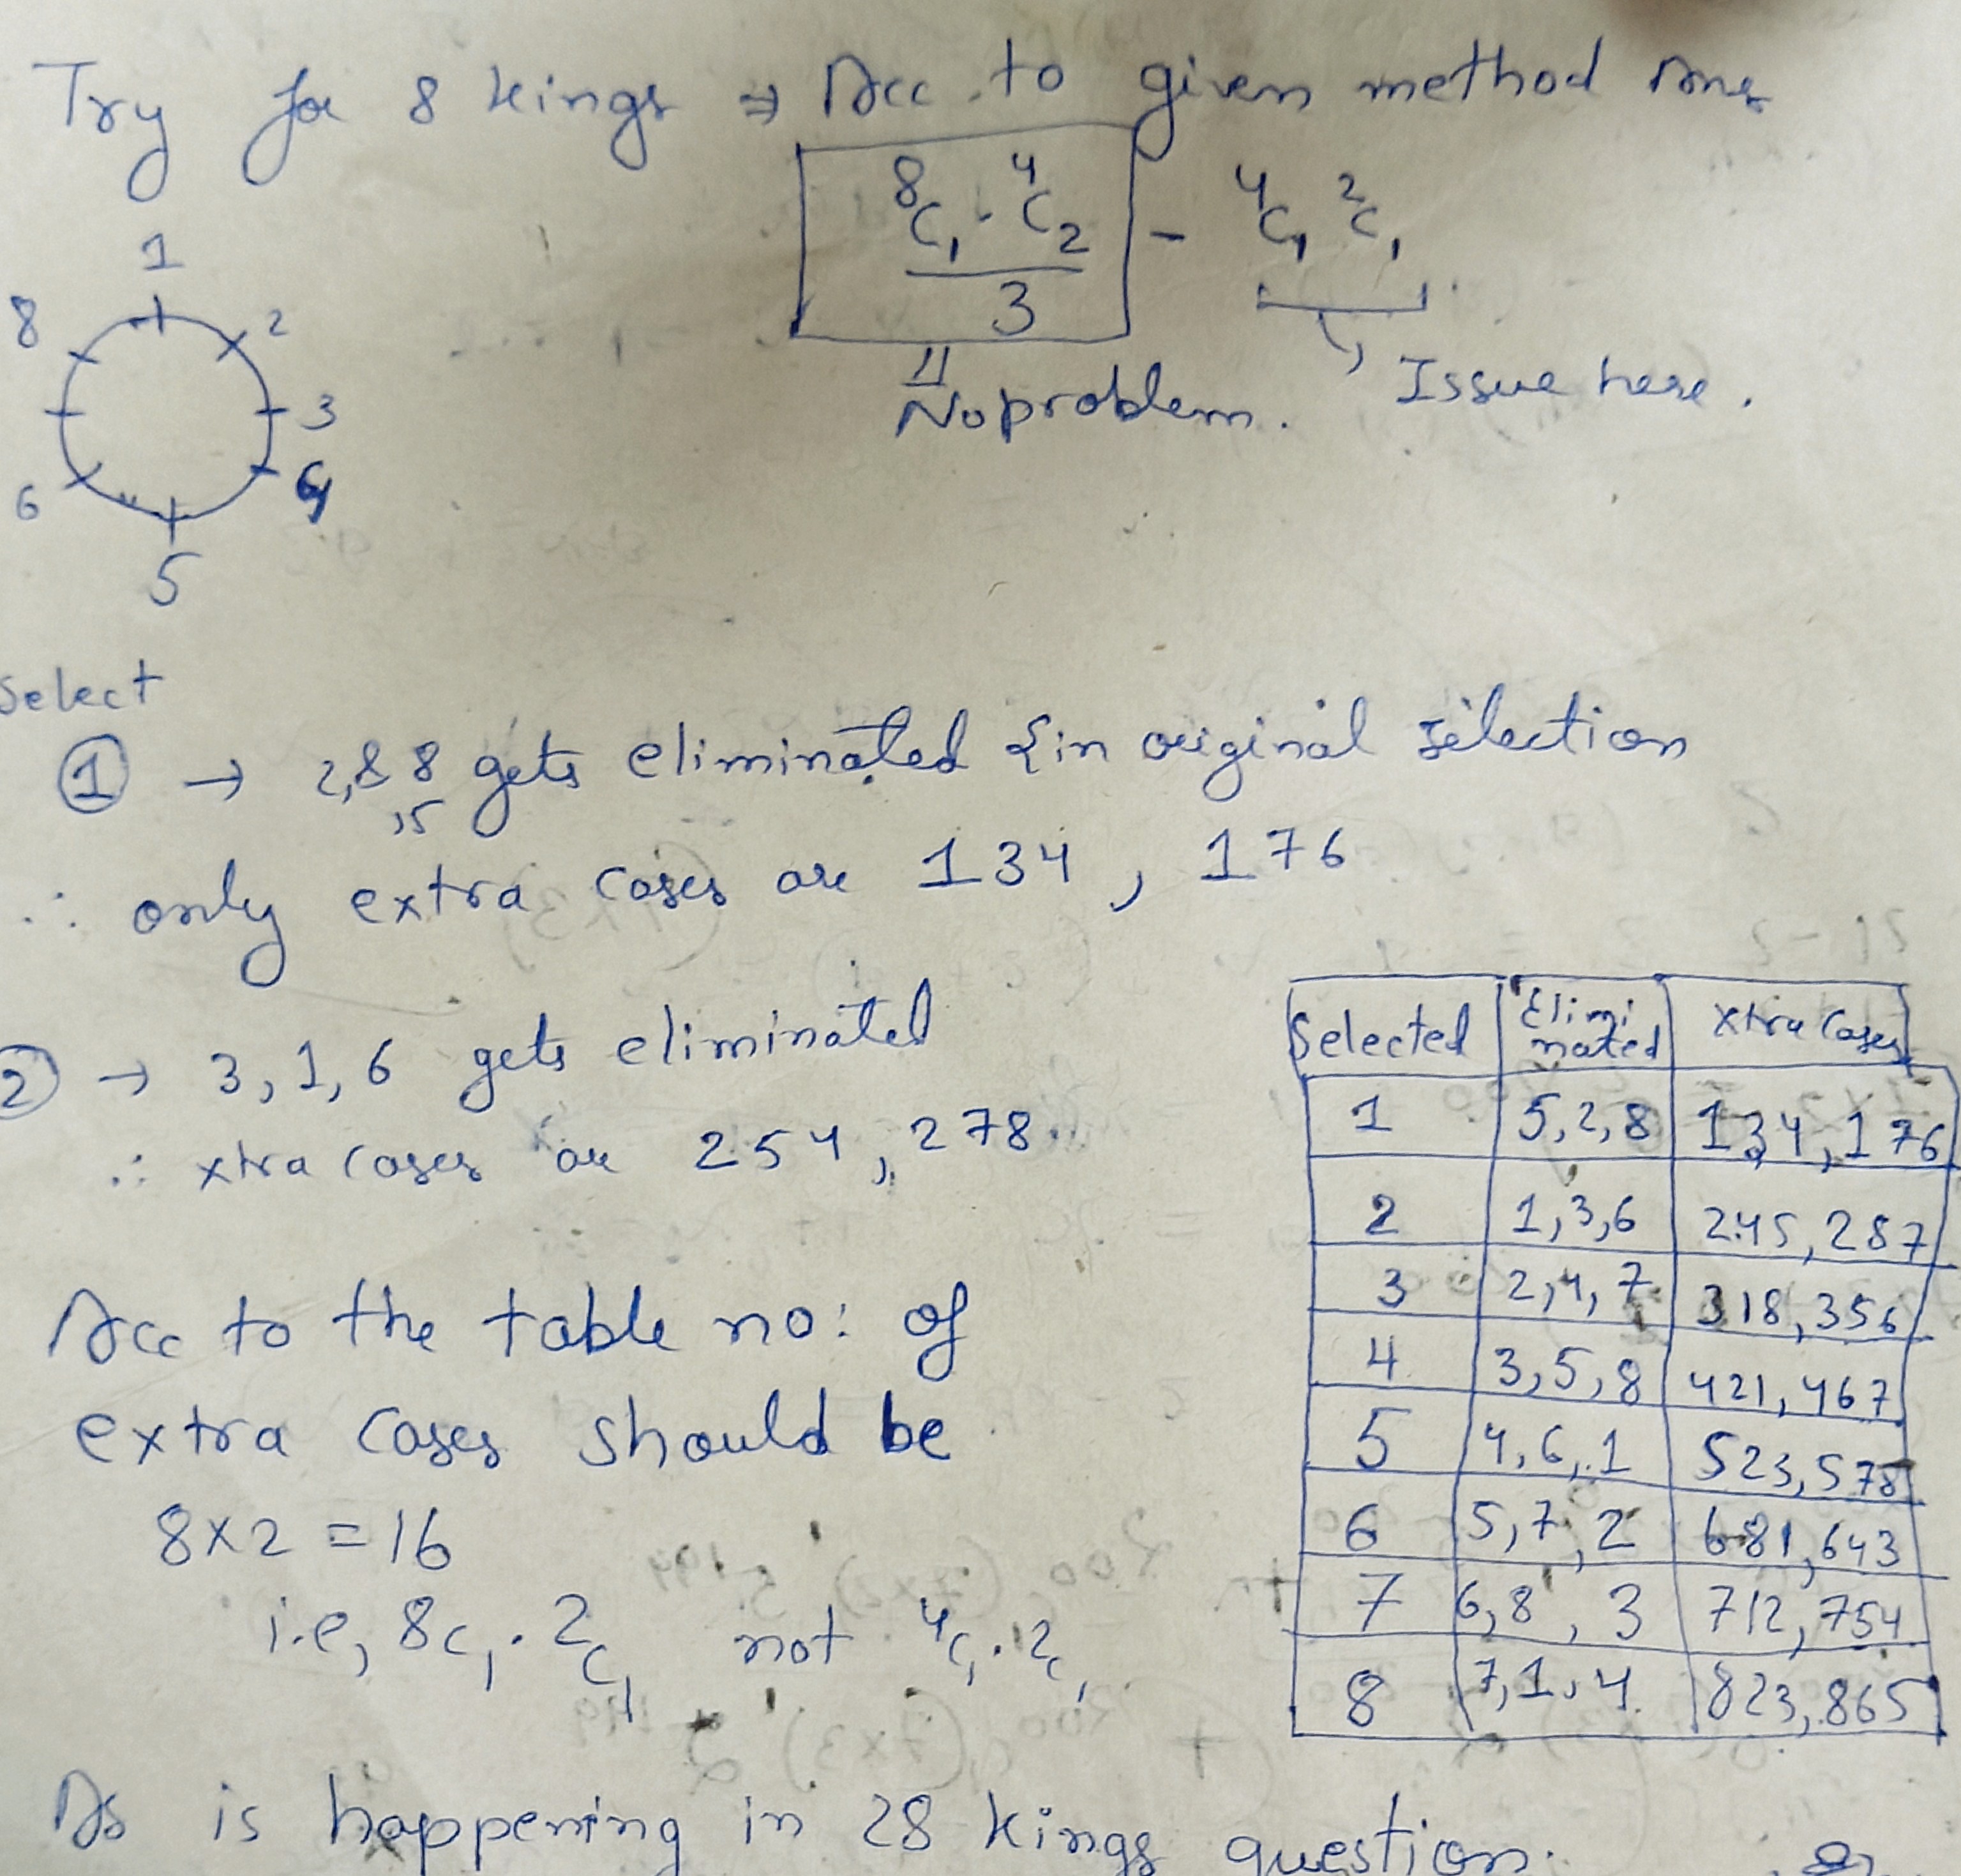 Try for 8 kings ⇒ Acc. to given method ans
8C1 · 4C2 / 3 - 4C1 2C1
No problem.
Issue here.
1
8
2
3
4
6
5
Select
① → 2,8 8 gets eliminated {in original selection
,5
∴ only extra cases are 134, 176
② → 3, 1, 6 gets eliminated
∴ xtra cases are 254, 278
Acc to the table no: of
extra cases should be
8x2 = 16
i.e, 8C1 · 2C1 not 4C1 · 2C1
Selected Elimi nated Xtra Cases
1 5,2,8 134, 176
2 1,3,6 245, 287
3 2,4,7 318, 356
4 3,5,8 421, 467
5 4,6,1 523, 578
6 5,7,2 681, 643
7 6,8,3 712, 754
8 7,1,4 823, 865
As is happening in 28 kings question.